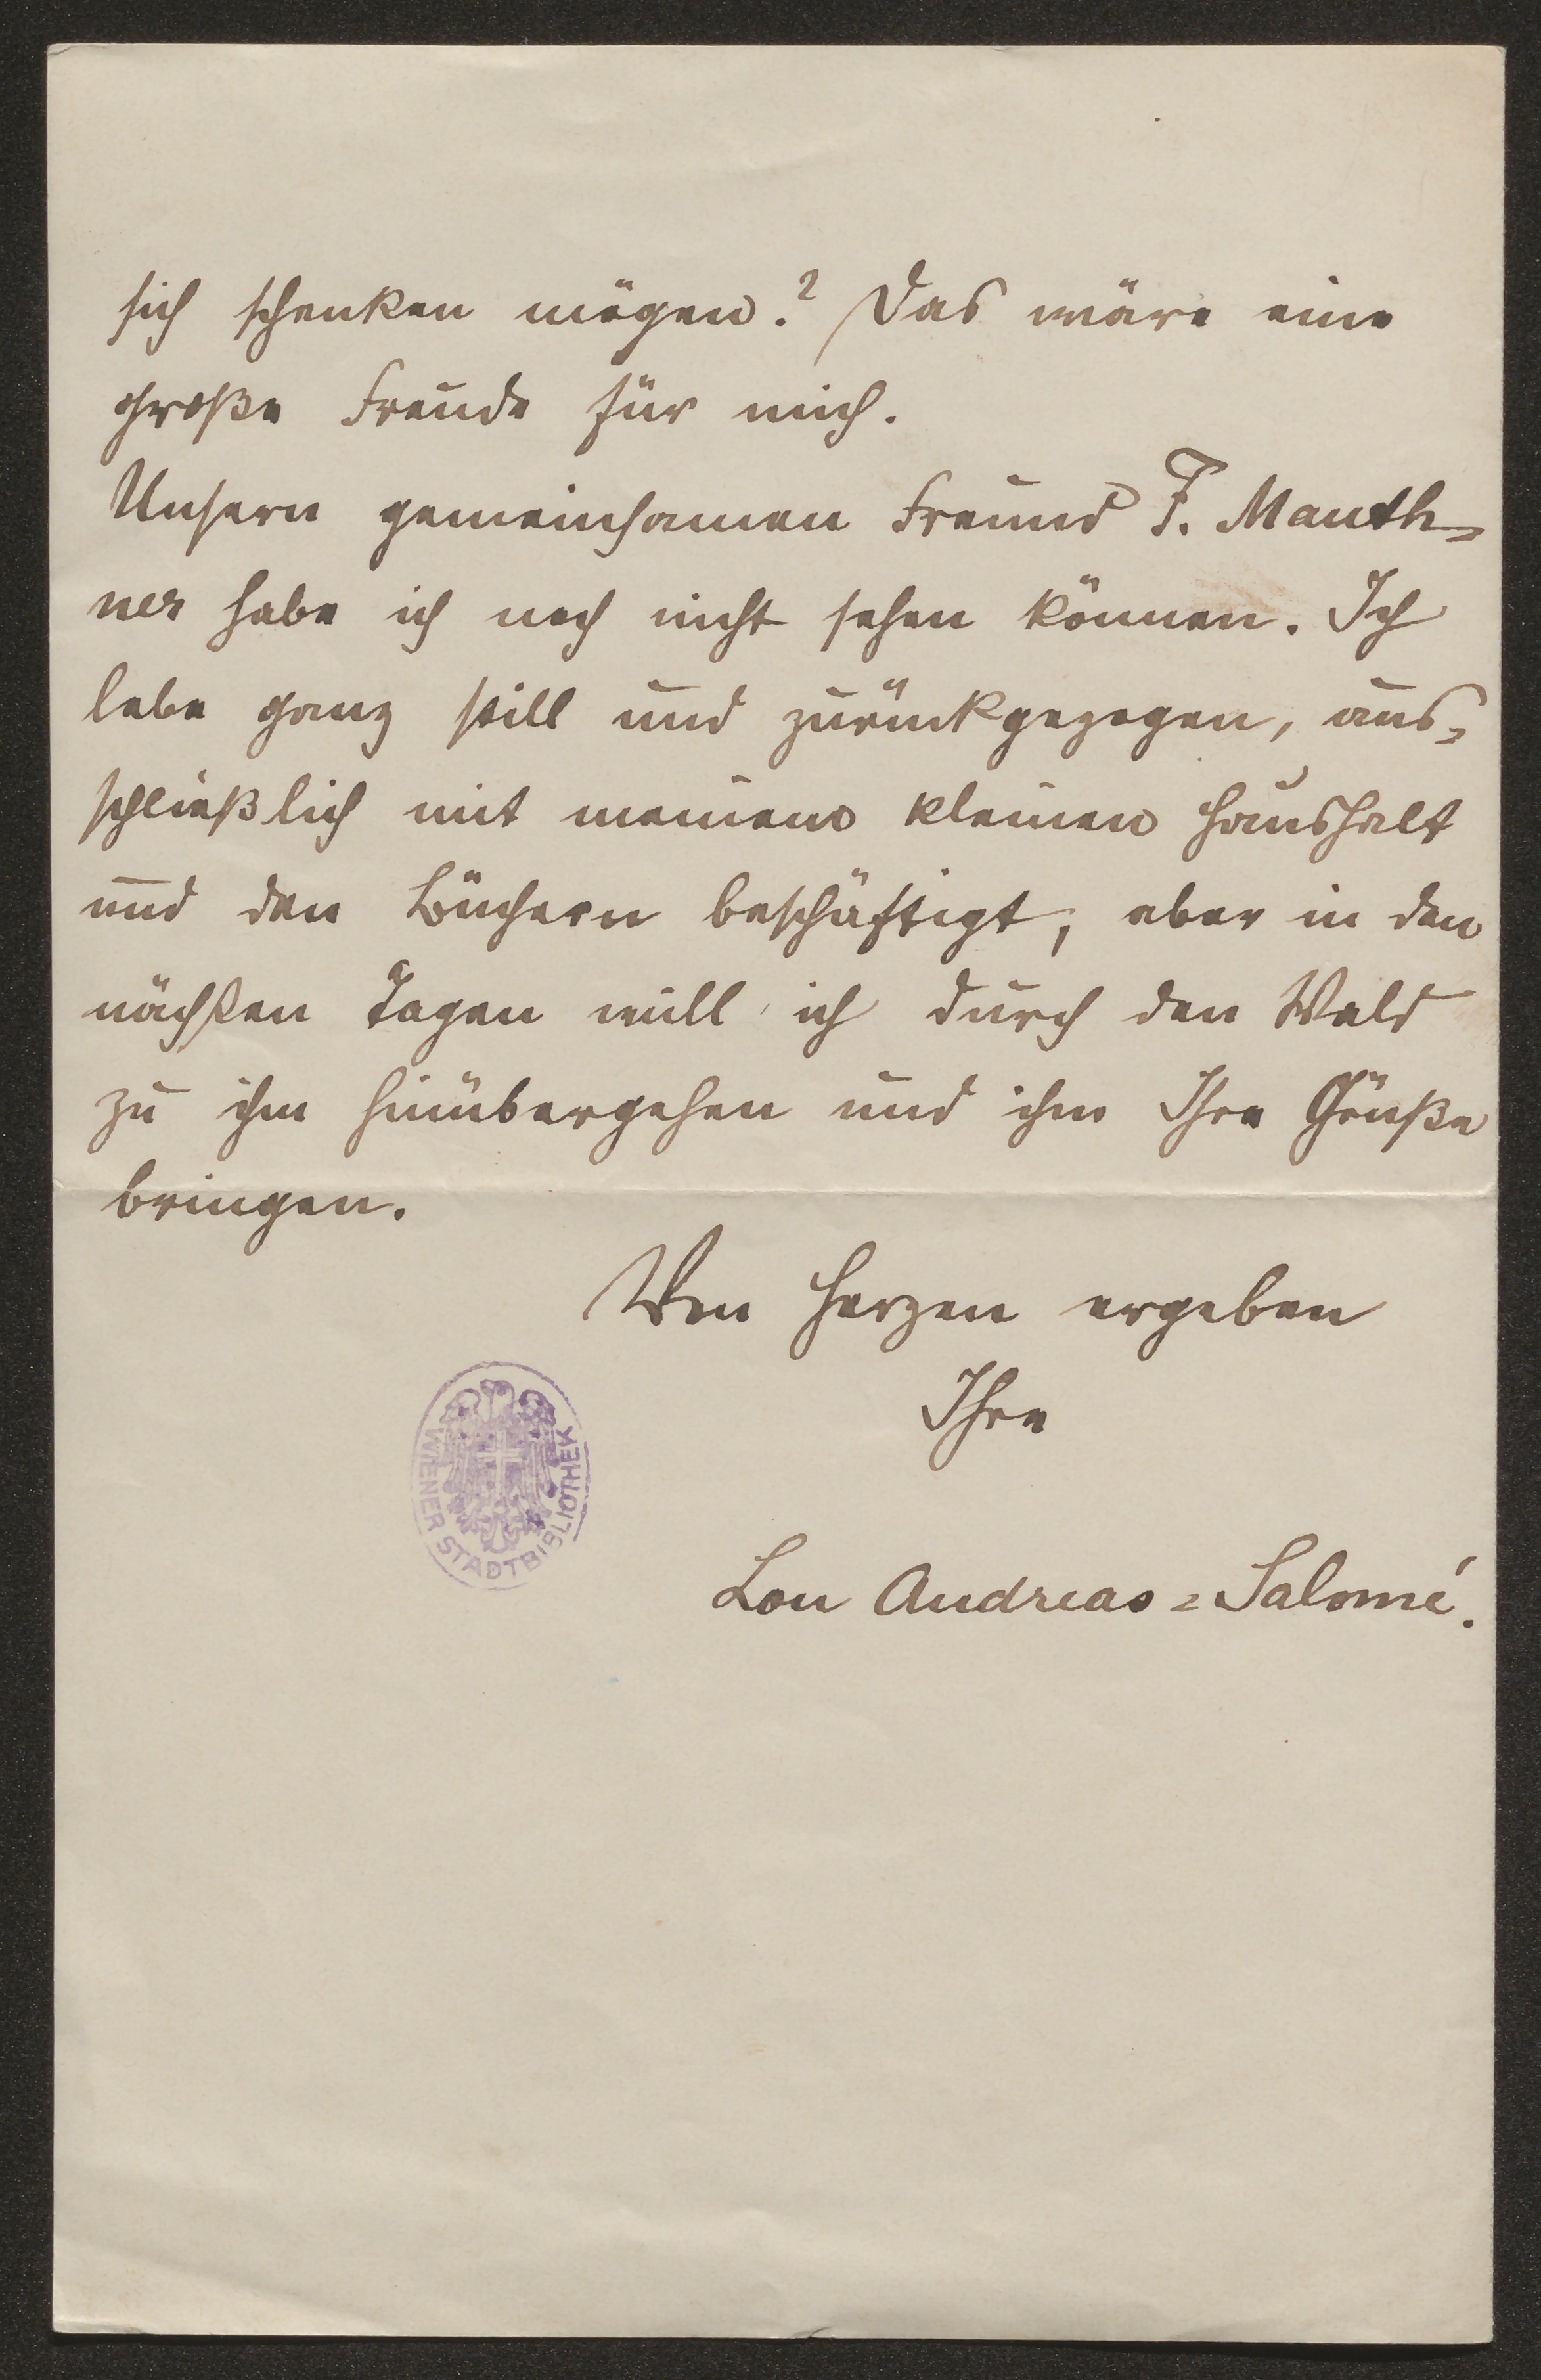 sich schenken mögen? Das wäre eine
große Freude für mich.
Unsern gemeinsamen Freund F. Mauth-
ner habe ich noch nicht sehen können. Ich
lebe ganz still und zurückgezogen, aus-
schließlich mit meinem kleinen Haushalt
und den Büchern beschäftigt, aber in den
nächsten Tagen will ich durch den Wald
zu ihm hinübergehen und ihm Ihre Grüße
bringen.
Von Herzen ergeben
Ihre
WIENER STADTBIBLIOTHEK
Lou Andreas-Salomé.